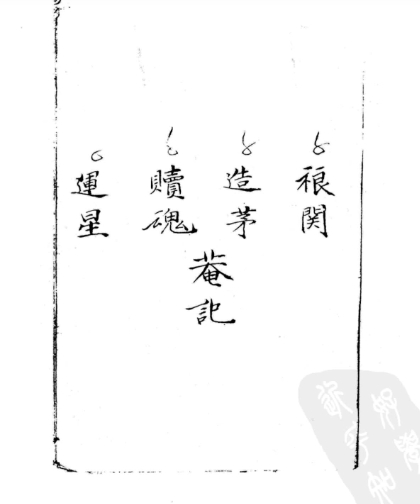 関
造茅
贖魂
運星
菴記